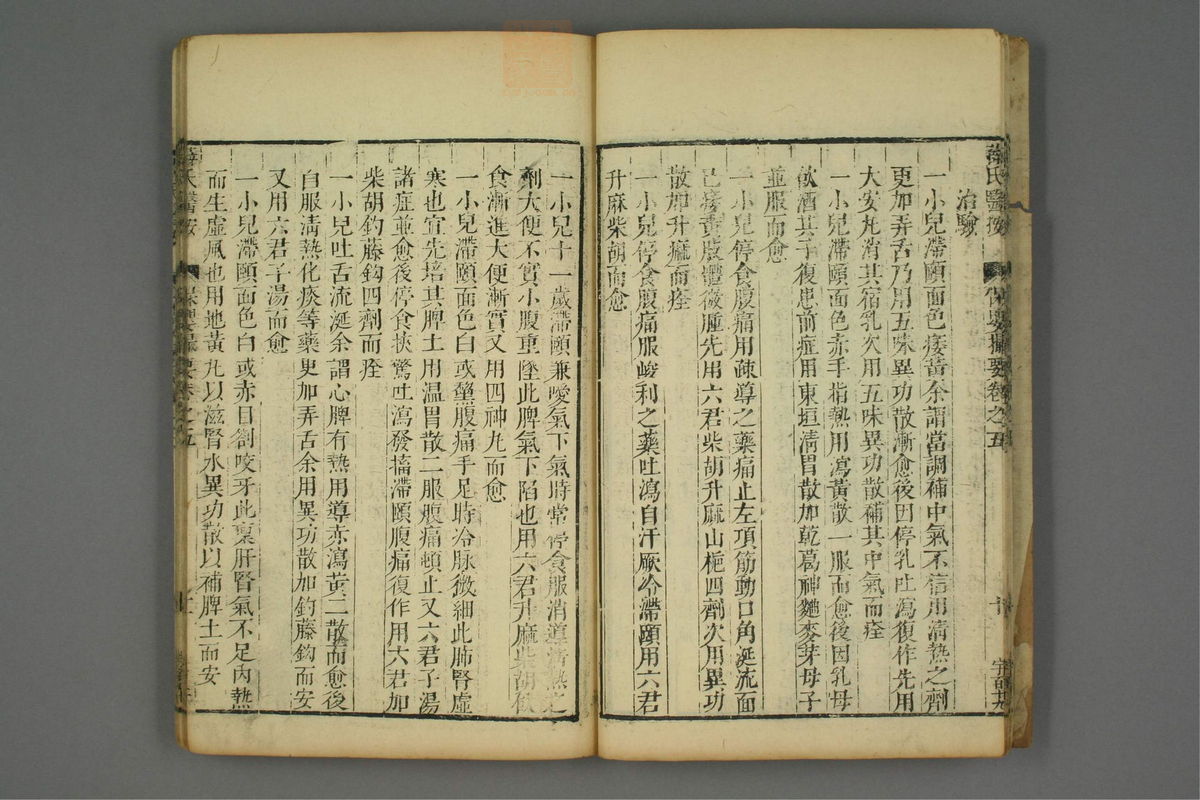 薛氏醫按 保嬰撮要卷之五
治驗
一小兒滯頤面色痿黃余謂當調補中氣不信用清熱之劑
更加弄舌乃用五味異功散漸愈後因停乳吐瀉復作先用
大安丸消其宿乳次用五味異功散補其中氣而痊
一小兒滯頤面色赤手指熱用瀉黃散一服而愈後因乳母
飲酒其子復患前症用東垣清胃散加乾葛神麯麥芽母子
並服而愈
一小兒停食腹痛用疎導之藥痛止左項筋動口角涎流面
已痿黃肢體微腫先用六君柴胡升麻山梔四劑次用異功
散加升麻而痊
一小兒停食腹痛服峻利之藥吐瀉自汗厥冷滯頤用六君
升麻柴胡而愈
一小兒十一歲滯頤兼噯氣下氣時常停食服消導清熱之
劑大便不實小腹重墜此脾氣下陷也用六君升麻柴胡俟
食漸進大便漸實又用四神丸而愈
一小兒滯頤面色白或黧腹痛手足時冷脉微細此肺腎虛
寒也宜先培其脾土用温胃散二服腹痛頓止又六君子湯
諸症並愈後停食挾驚吐瀉發搐滯頤腹痛復作用六君加
柴胡釣藤鈎四劑而痊
一小兒吐舌流涎余謂心脾有熱用導赤瀉黃二散而愈後
自服清熱化痰等藥更加弄舌余用異功散加釣藤鈎而安
又用六君子湯而愈
一小兒滯頤面色白或赤目劄咬牙此禀肝腎氣不足內熱
而生虛風也用地黃丸以滋腎水異功散以補脾土而安
薛氏醫按 保嬰撮要卷之五